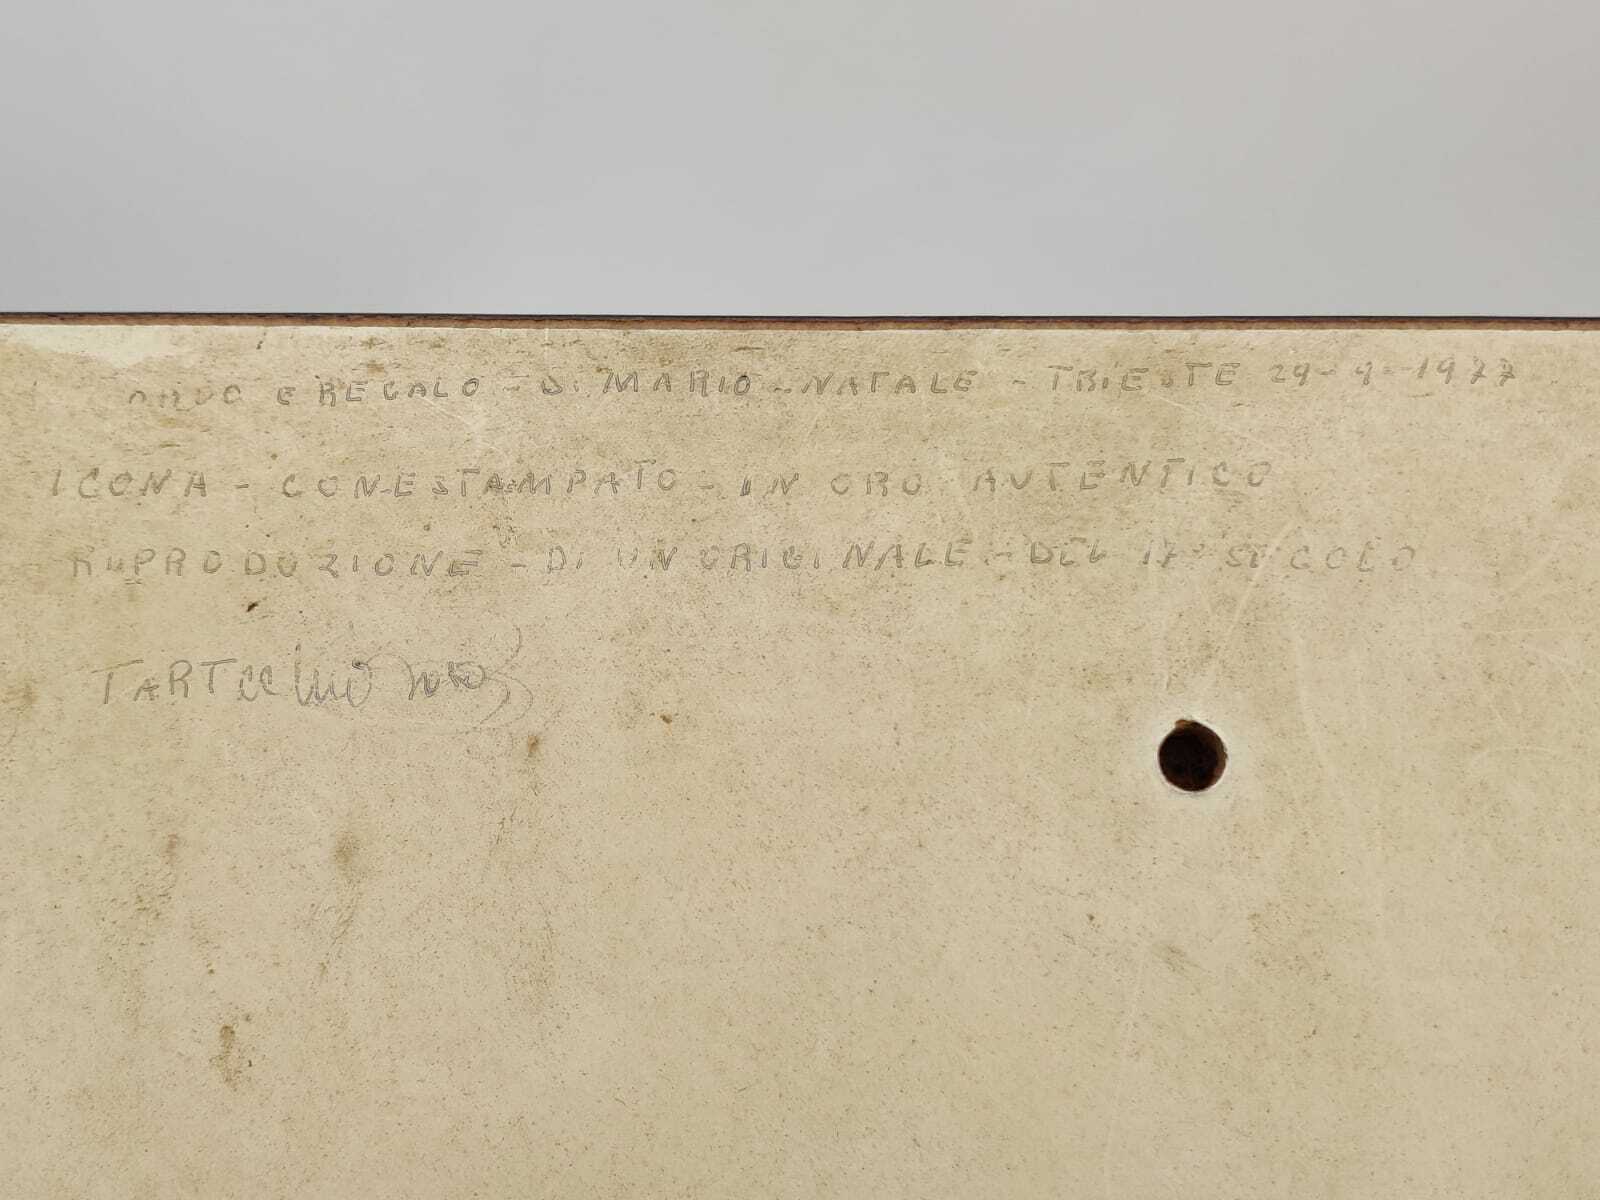 E REGALO - S. MARIO - NATALE - TRIESTE 29-9-1977
ICONA - CON E STAMPATO - IN ORO AUTENTICO
RIPRODUZIONE - DI UN ORIGINALE - DEL 17° SECOLO